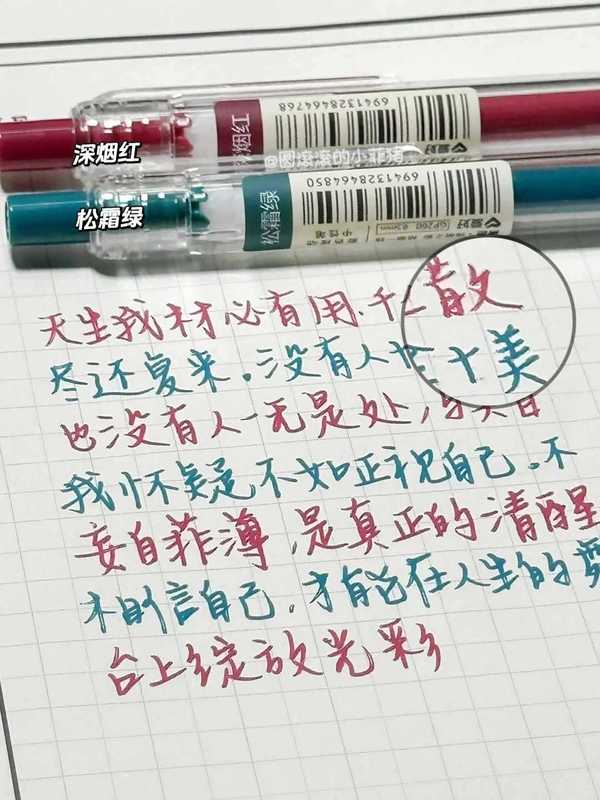 深烟红
深烟红
6941328464768
@圆滚滚的小菲猪
爱好
松霜绿
松霜绿
6941328464850
爱好
天生我材必有用.千 散
尽还复来。没有人 十美
也没有人一无是处,与其自
我怀疑不如正视自己。不
妄自菲薄,是真正的清醒
相信自己,才能在人生的舞
台上绽放光彩